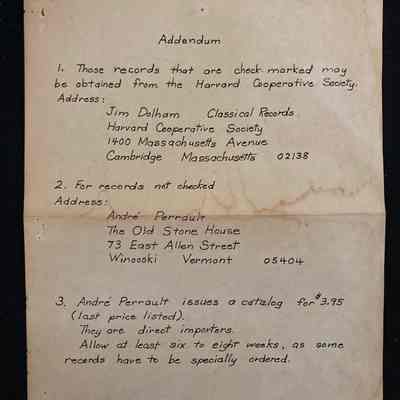 Addendum
1. Those records that are check-marked may
be obtained from the Harvard Cooperative Society.
Address:
Jim Dolham Classical Records
Harvard Cooperative Society
1400 Massachusetts Avenue
Cambridge Massachusetts 02138
2. For records not checked
Address:
André Perrault
The Old Stone House
73 East Allen Street
Winooski Vermont 05404
3. André Perrault issues a catalog for $3.95
(last price listed).
They are direct importers.
Allow at least six to eight weeks, as some
records have to be specially ordered.